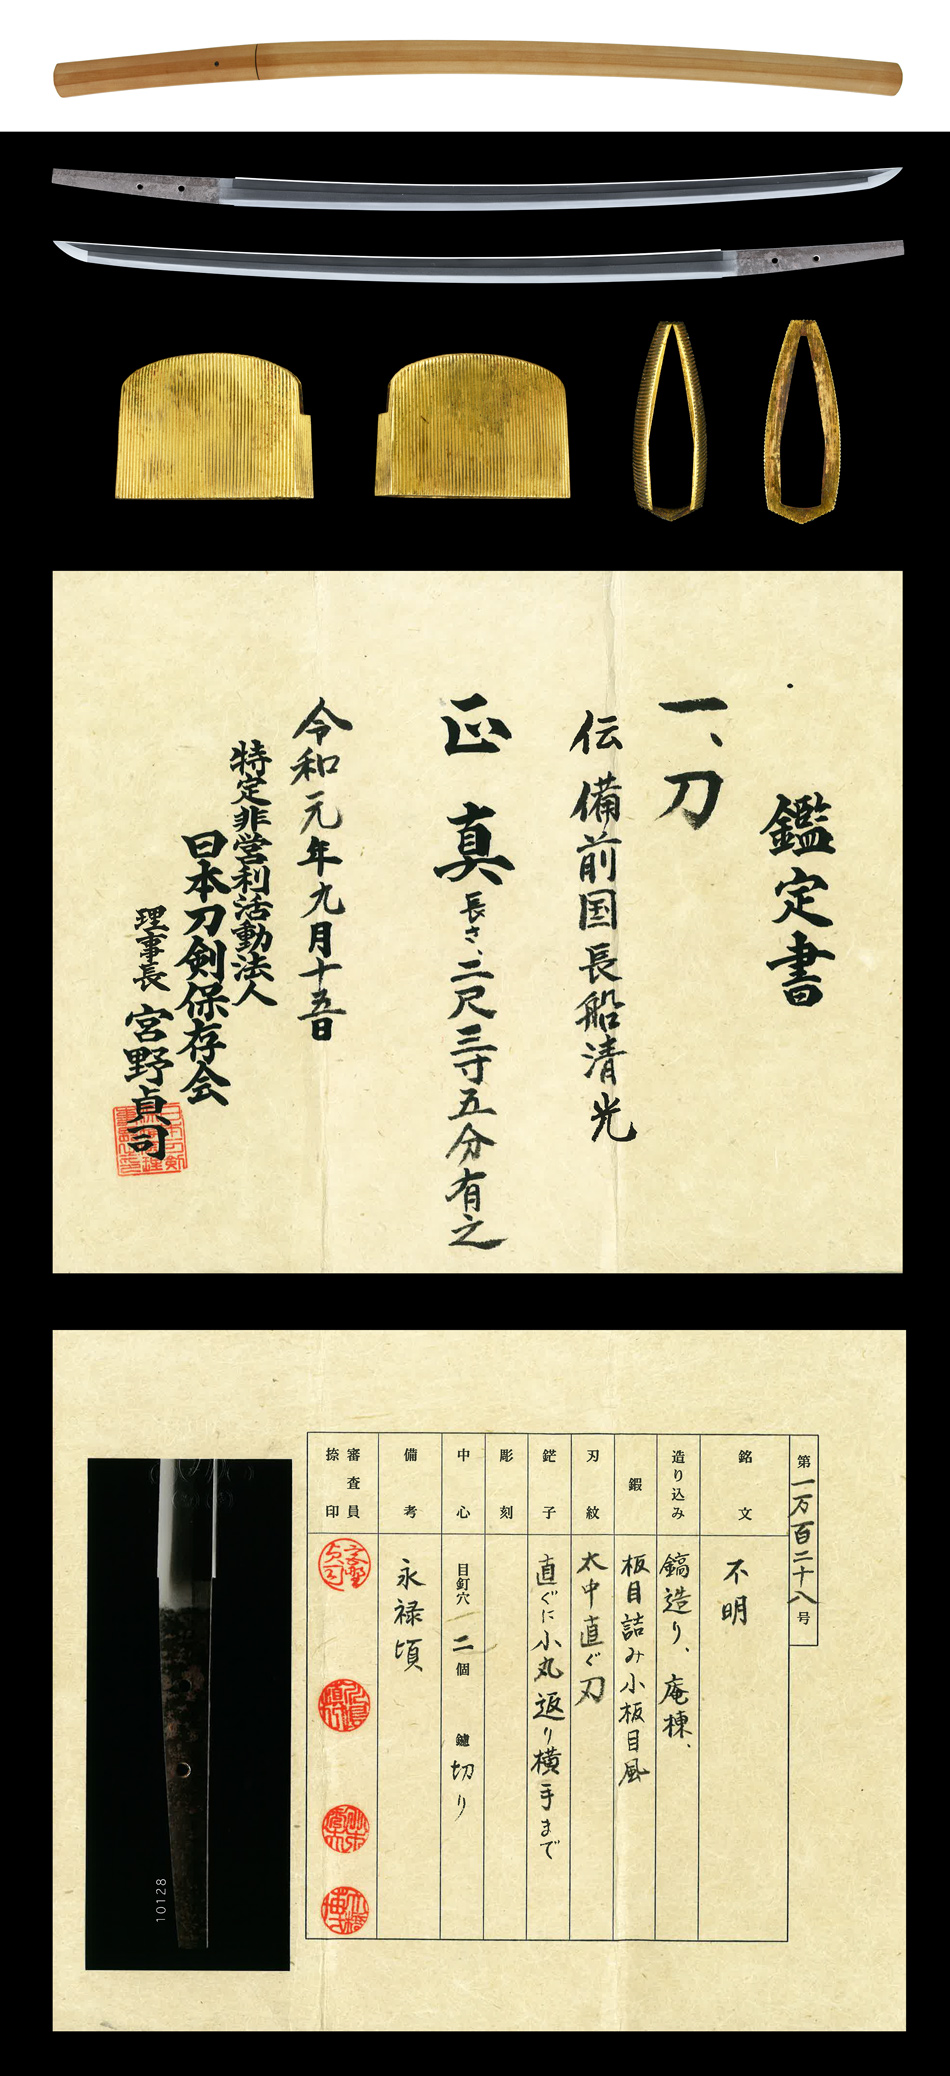 鑑定書
一、刀
伝 備前国長船清光
正真 長さ、二尺三寸五分有之
令和元年九月十五日
特定非営利活動法人
日本刀剣保存会
理事長 宮野貞司
第一万百二十八号
銘文 不明
造り込み 鎬造り、庵棟、
鍛 板目詰み小板目風
刃紋 太中直ぐ刃
鋩子 直ぐに小丸返り横手まで
彫刻
中心 目釘穴 二個 鑢 切り
備考 永禄頃
審査員
捺印
10128